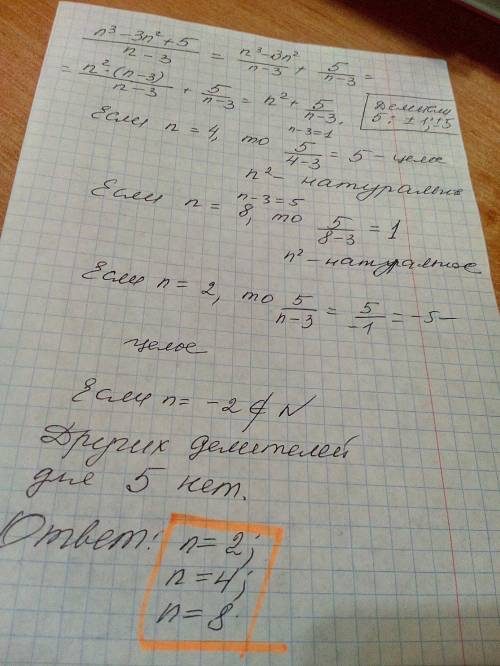 n³-3n²+5 / n-3 = n³-3n² / n-3 + 5 / n-3 =
= n²·(n-3) / n-3 + 5 / n-3 = n² + 5 / n-3.
Делители
5: ±1; ±5
n-3=1
Если n = 4, то 5 / 4-3 = 5 - целое
n² - натуральное
n-3=5
Если n = 8, то 5 / 8-3 = 1
n² - натуральное
Если n = 2, то 5 / n-3 = 5 / -1 = -5 -
целое
Если n = -2 ∉ N
Других делителей
для 5 нет.
Ответ: n=2;
n=4;
n=8